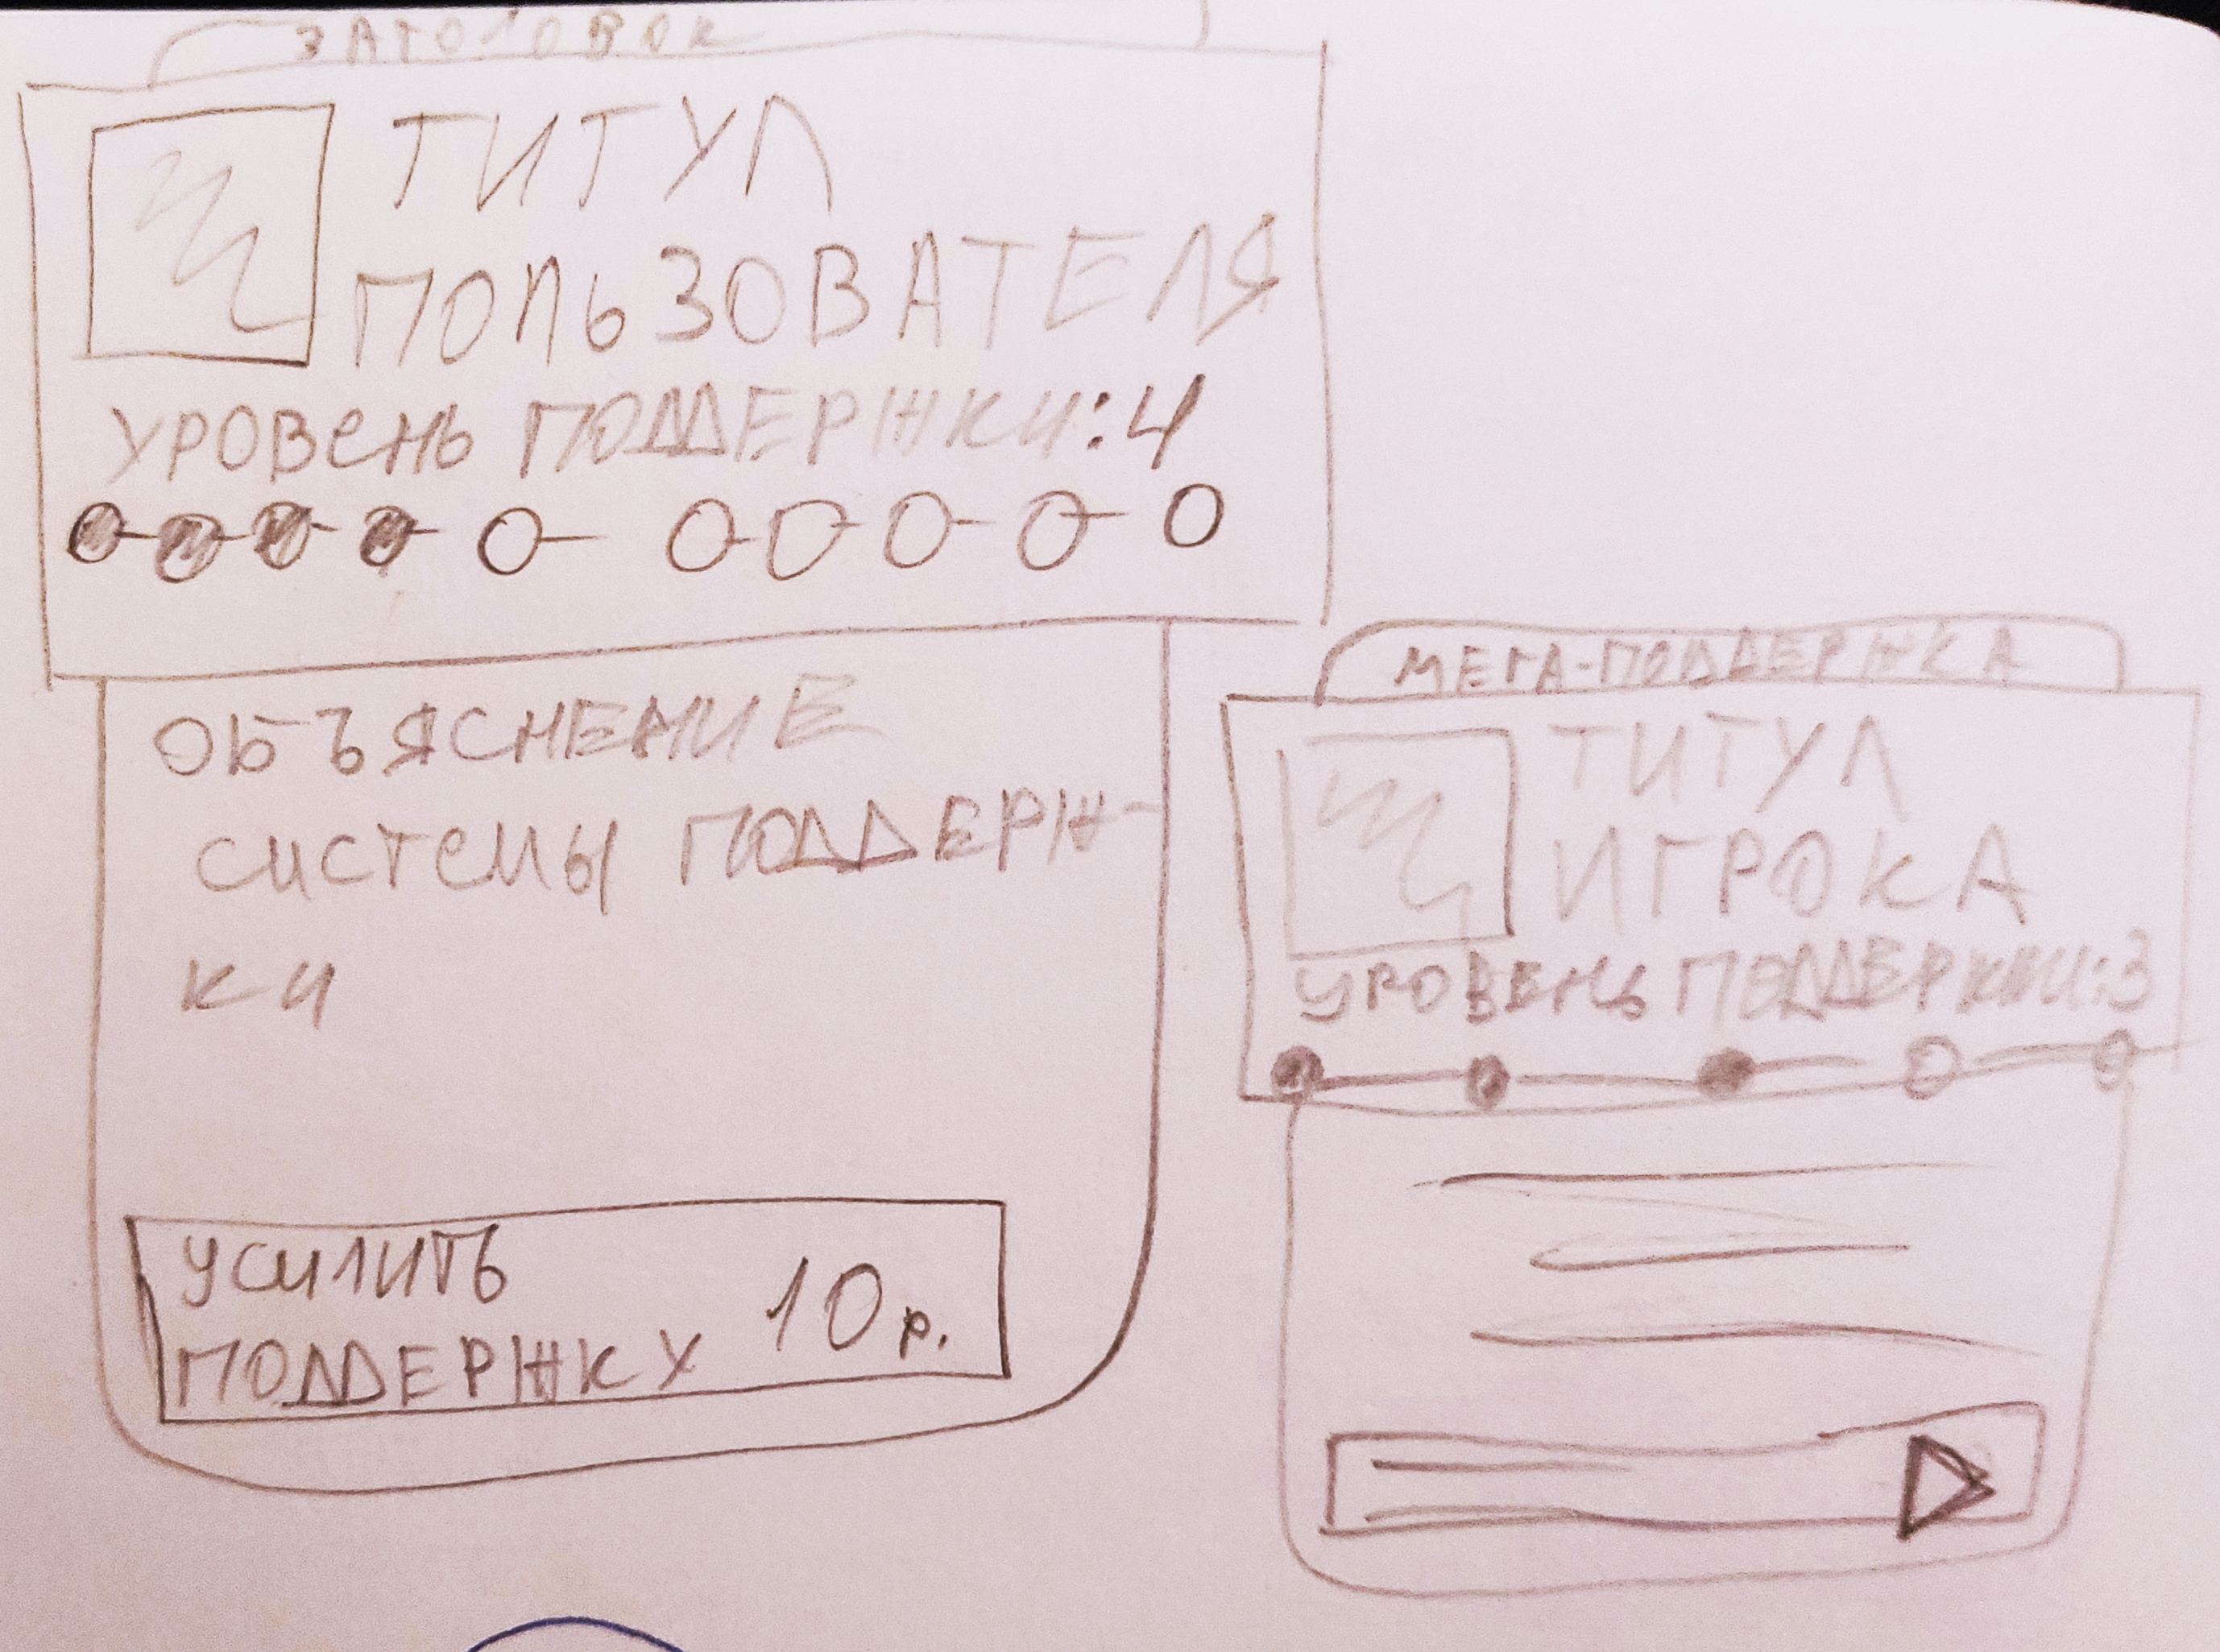 ЗАГОЛОВОК
ТИТУЛ
ПОЛЬЗОВАТЕЛЯ
УРОВЕНЬ ПОДДЕРЖКИ:4
ОБЪЯСНЕНИЕ
СИСТЕМЫ ПОДДЕРЖ-
КИ
УСИЛИТЬ
ПОДДЕРЖКУ 10р.
МЕГА-ПОДДЕРЖКА
ТИТУЛ
ИГРОКА
УРОВЕНЬ ПОДДЕРЖКИ:3